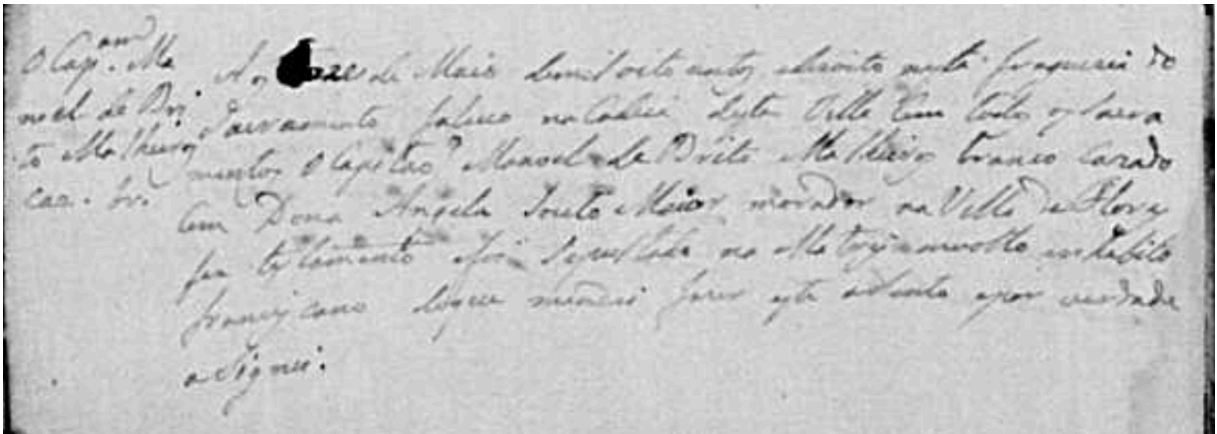 O Cap.am Ma
noel de Bri
to Malheiros
caz. br.
Aos de Maio de mil oito centos e dezoito nesta freguezia do
Sacramento faleceo na Cadeia desta Villa Com todos os Sacra
mentos O Capitao Manoel de Brito Malheiros branco Cazado
Com Dona Angela Souto Maior morador na Villa de Flores
fes testamento foi Sepultado na Matriz involto em habito
franciscano do que mandei fazer este asento e por verdade
a Signei.